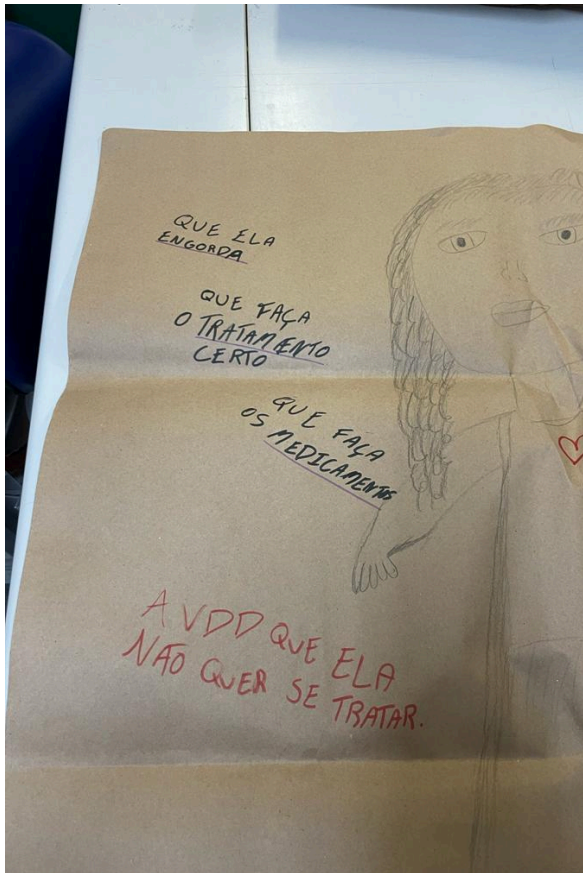 QUE ELA
ENGORDA
QUE FAÇA
O TRATAMENTO
CERTO
QUE FAÇA
OS MEDICAMENTOS
A VDD QUE ELA
NÃO QUER SE TRATAR.